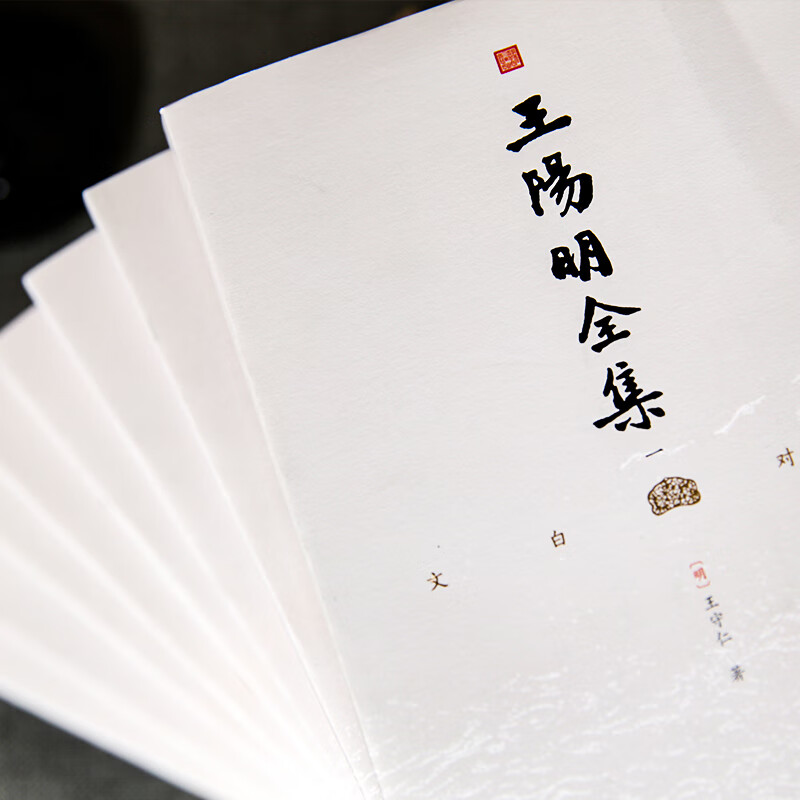 王陽明全集
一
文白对
[明]王守仁 著